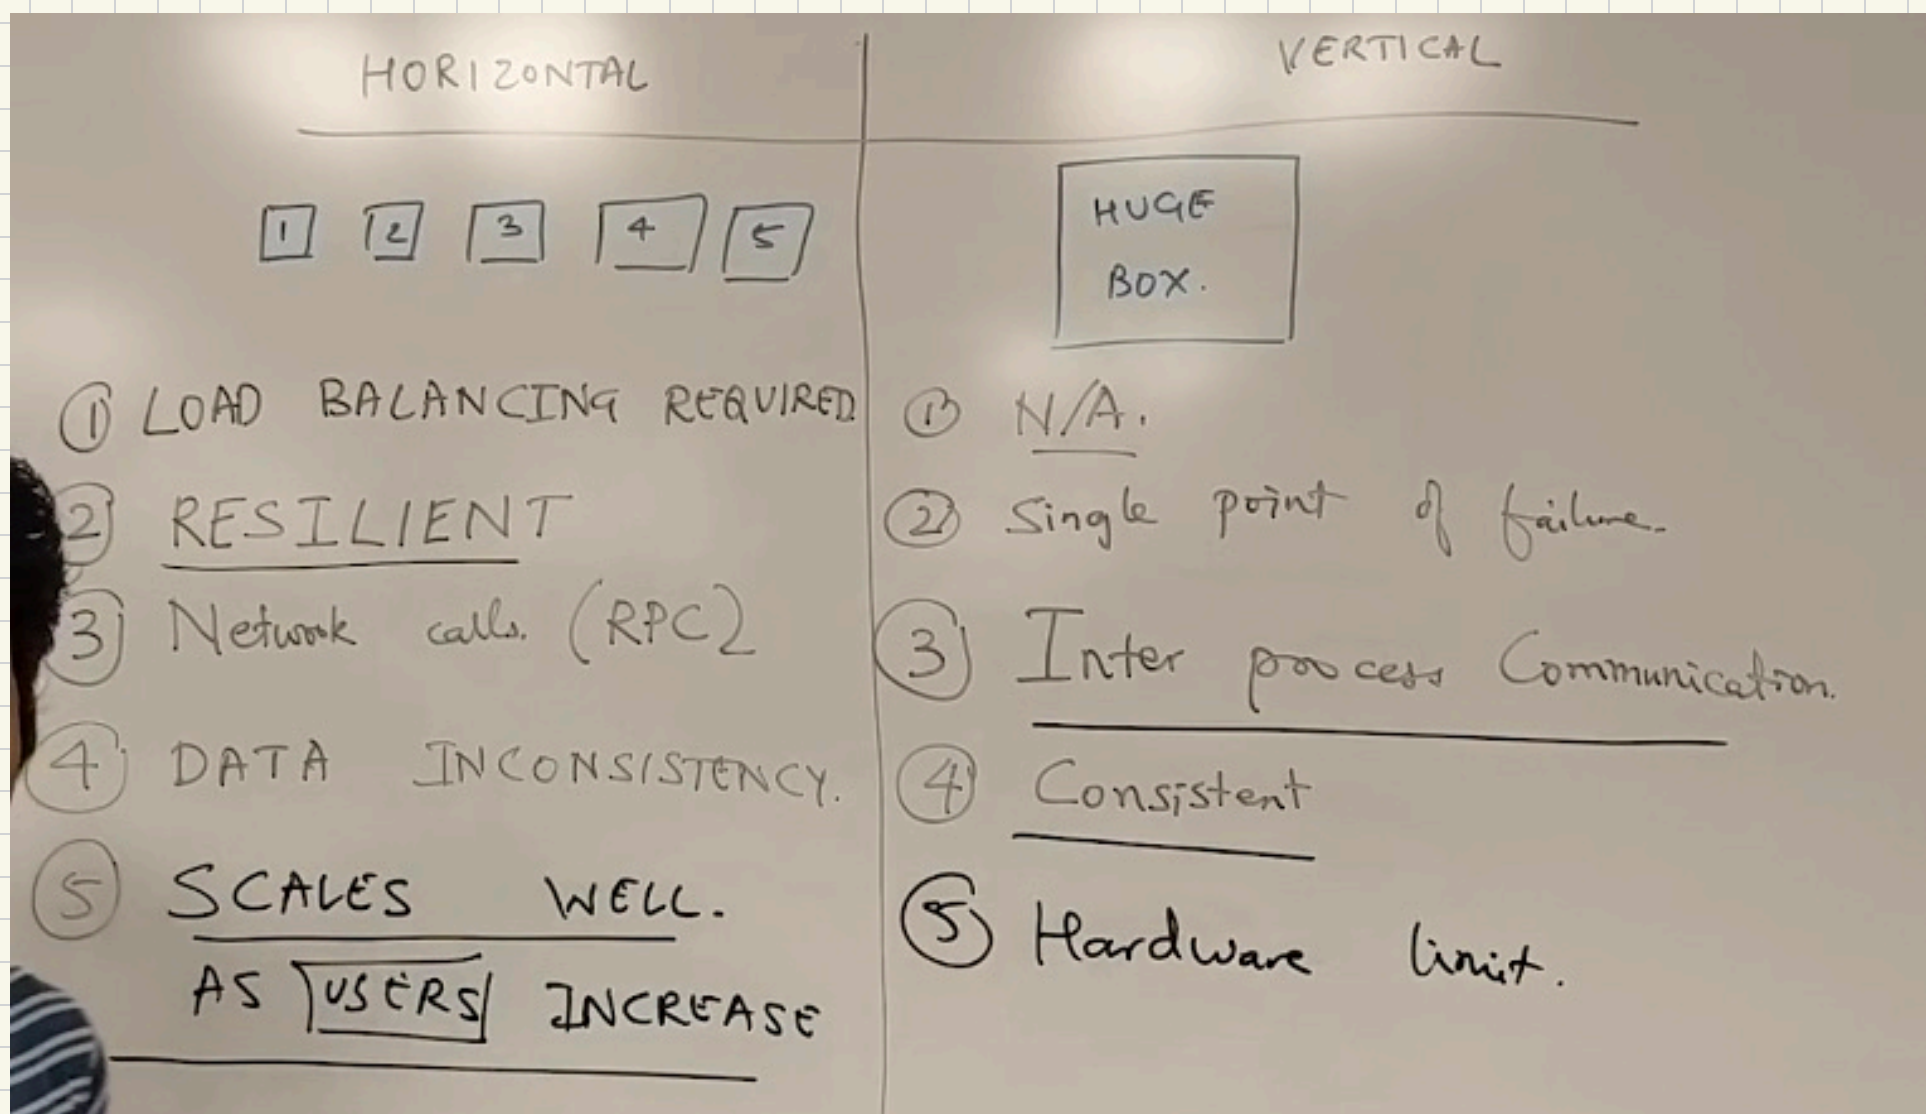 HORIZONTAL
1 2 3 4 5
① LOAD BALANCING REQUIRED
② RESILIENT
③ Network calls. (RPC)
④ DATA INCONSISTENCY.
⑤ SCALES WELL.
AS USERS INCREASE
VERTICAL
HUGE
BOX.
① N/A.
② Single point of failure.
③ Inter process Communication.
④ Consistent
⑤ Hardware limit.